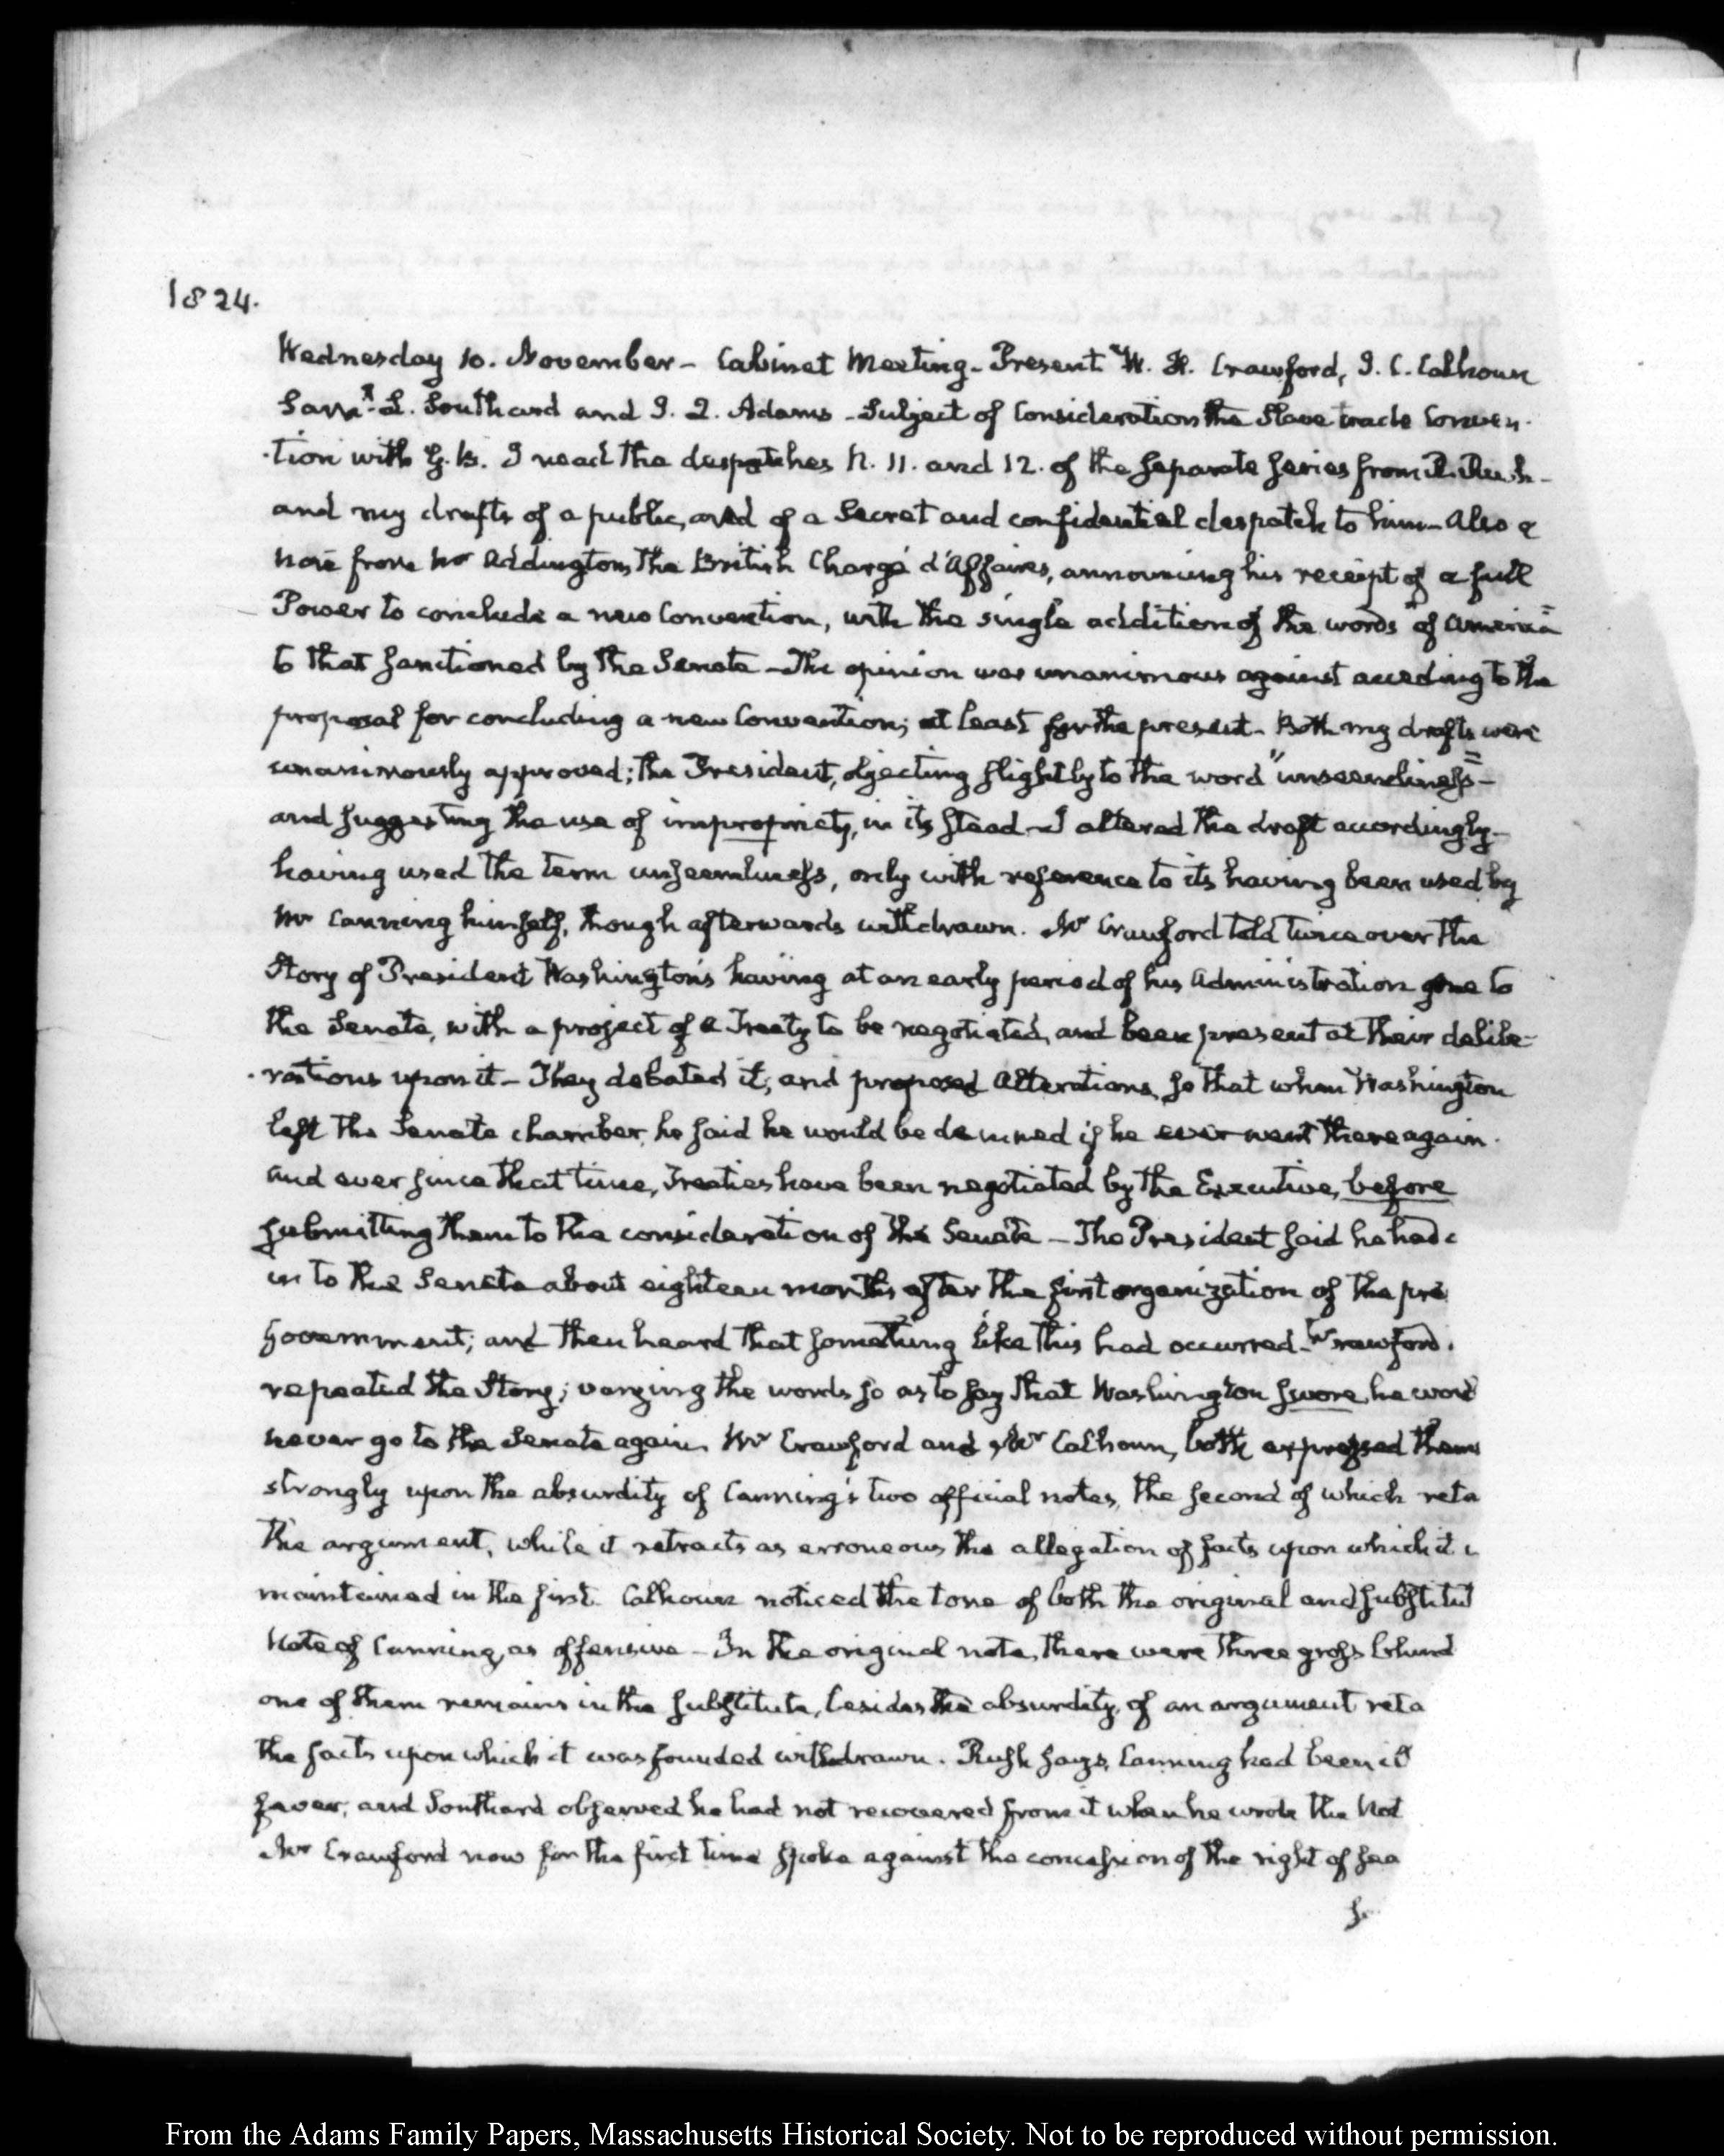 1824.
Wednesday 10. November – Cabinet Meeting – Present W. H. Crawford, J. C. Calhoun
Sam.l L. Southard and J. Q. Adams – Subject of Consideration the Slave trade Conven-
-tion with G. B. I read the despatches N. 11. and 12. of the separate series from R. Rush –
and my drafts of a public, and of a Secret and confidential despatch to him – Also a
note from Mr Addington, the British Chargé d'Affaires, announcing his receipt of a full
Power to conclude a new Convention, with the single addition of the words "of America"
to that sanctioned by the Senate – The opinion was unanimous against acceding to the
proposal for concluding a new Convention; at least for the present – Both my drafts were
unanimously approved; the President, objecting slightly to the word "unseemliness" –
and suggesting the use of impropriety, in its stead – I altered the draft accordingly –
having used the term unseemliness, only with reference to its having been used by
Mr Canning himself, though afterwards withdrawn. Mr Crawford told twice over the
Story of President Washington's having at an early period of his Administration gone to
the Senate, with a project of a Treaty to be negotiated, and been present at their delibe-
-rations upon it – They debated it, and proposed alterations, so that when Washington
left the Senate chamber, he said he would be damned if he ever went there again.
And ever since that time, Treaties have been negotiated by the Executive, before
submitting them to the consideration of the Senate – The President said he had c
in to the Senate about eighteen months after the first organization of the pre
Government; and then heard that something like this had occurred – Crawford
repeated the Story; varying the words so as to say that Washington swore he woul
never go to the Senate again. Mr Crawford and Mr Calhoun, both expressed them
strongly upon the absurdity of Canning's two official notes, the second of which reta
the argument, while it retracts as erroneous the allegation of facts upon which it
maintained in the first. Calhoun noticed the tone of both the original and substitut
Note of Canning, as offensive – In the original note, there were three gross blund
one of them remains in the substitute, besides the absurdity, of an argument reta
the facts upon which it was founded withdrawn. Rush says, Canning had been ill
fever, and Southard observed he had not recovered from it when he wrote the Not
Mr Crawford now for the first time spoke against the concession of the right of sea
From the Adams Family Papers, Massachusetts Historical Society. Not to be reproduced without permission.